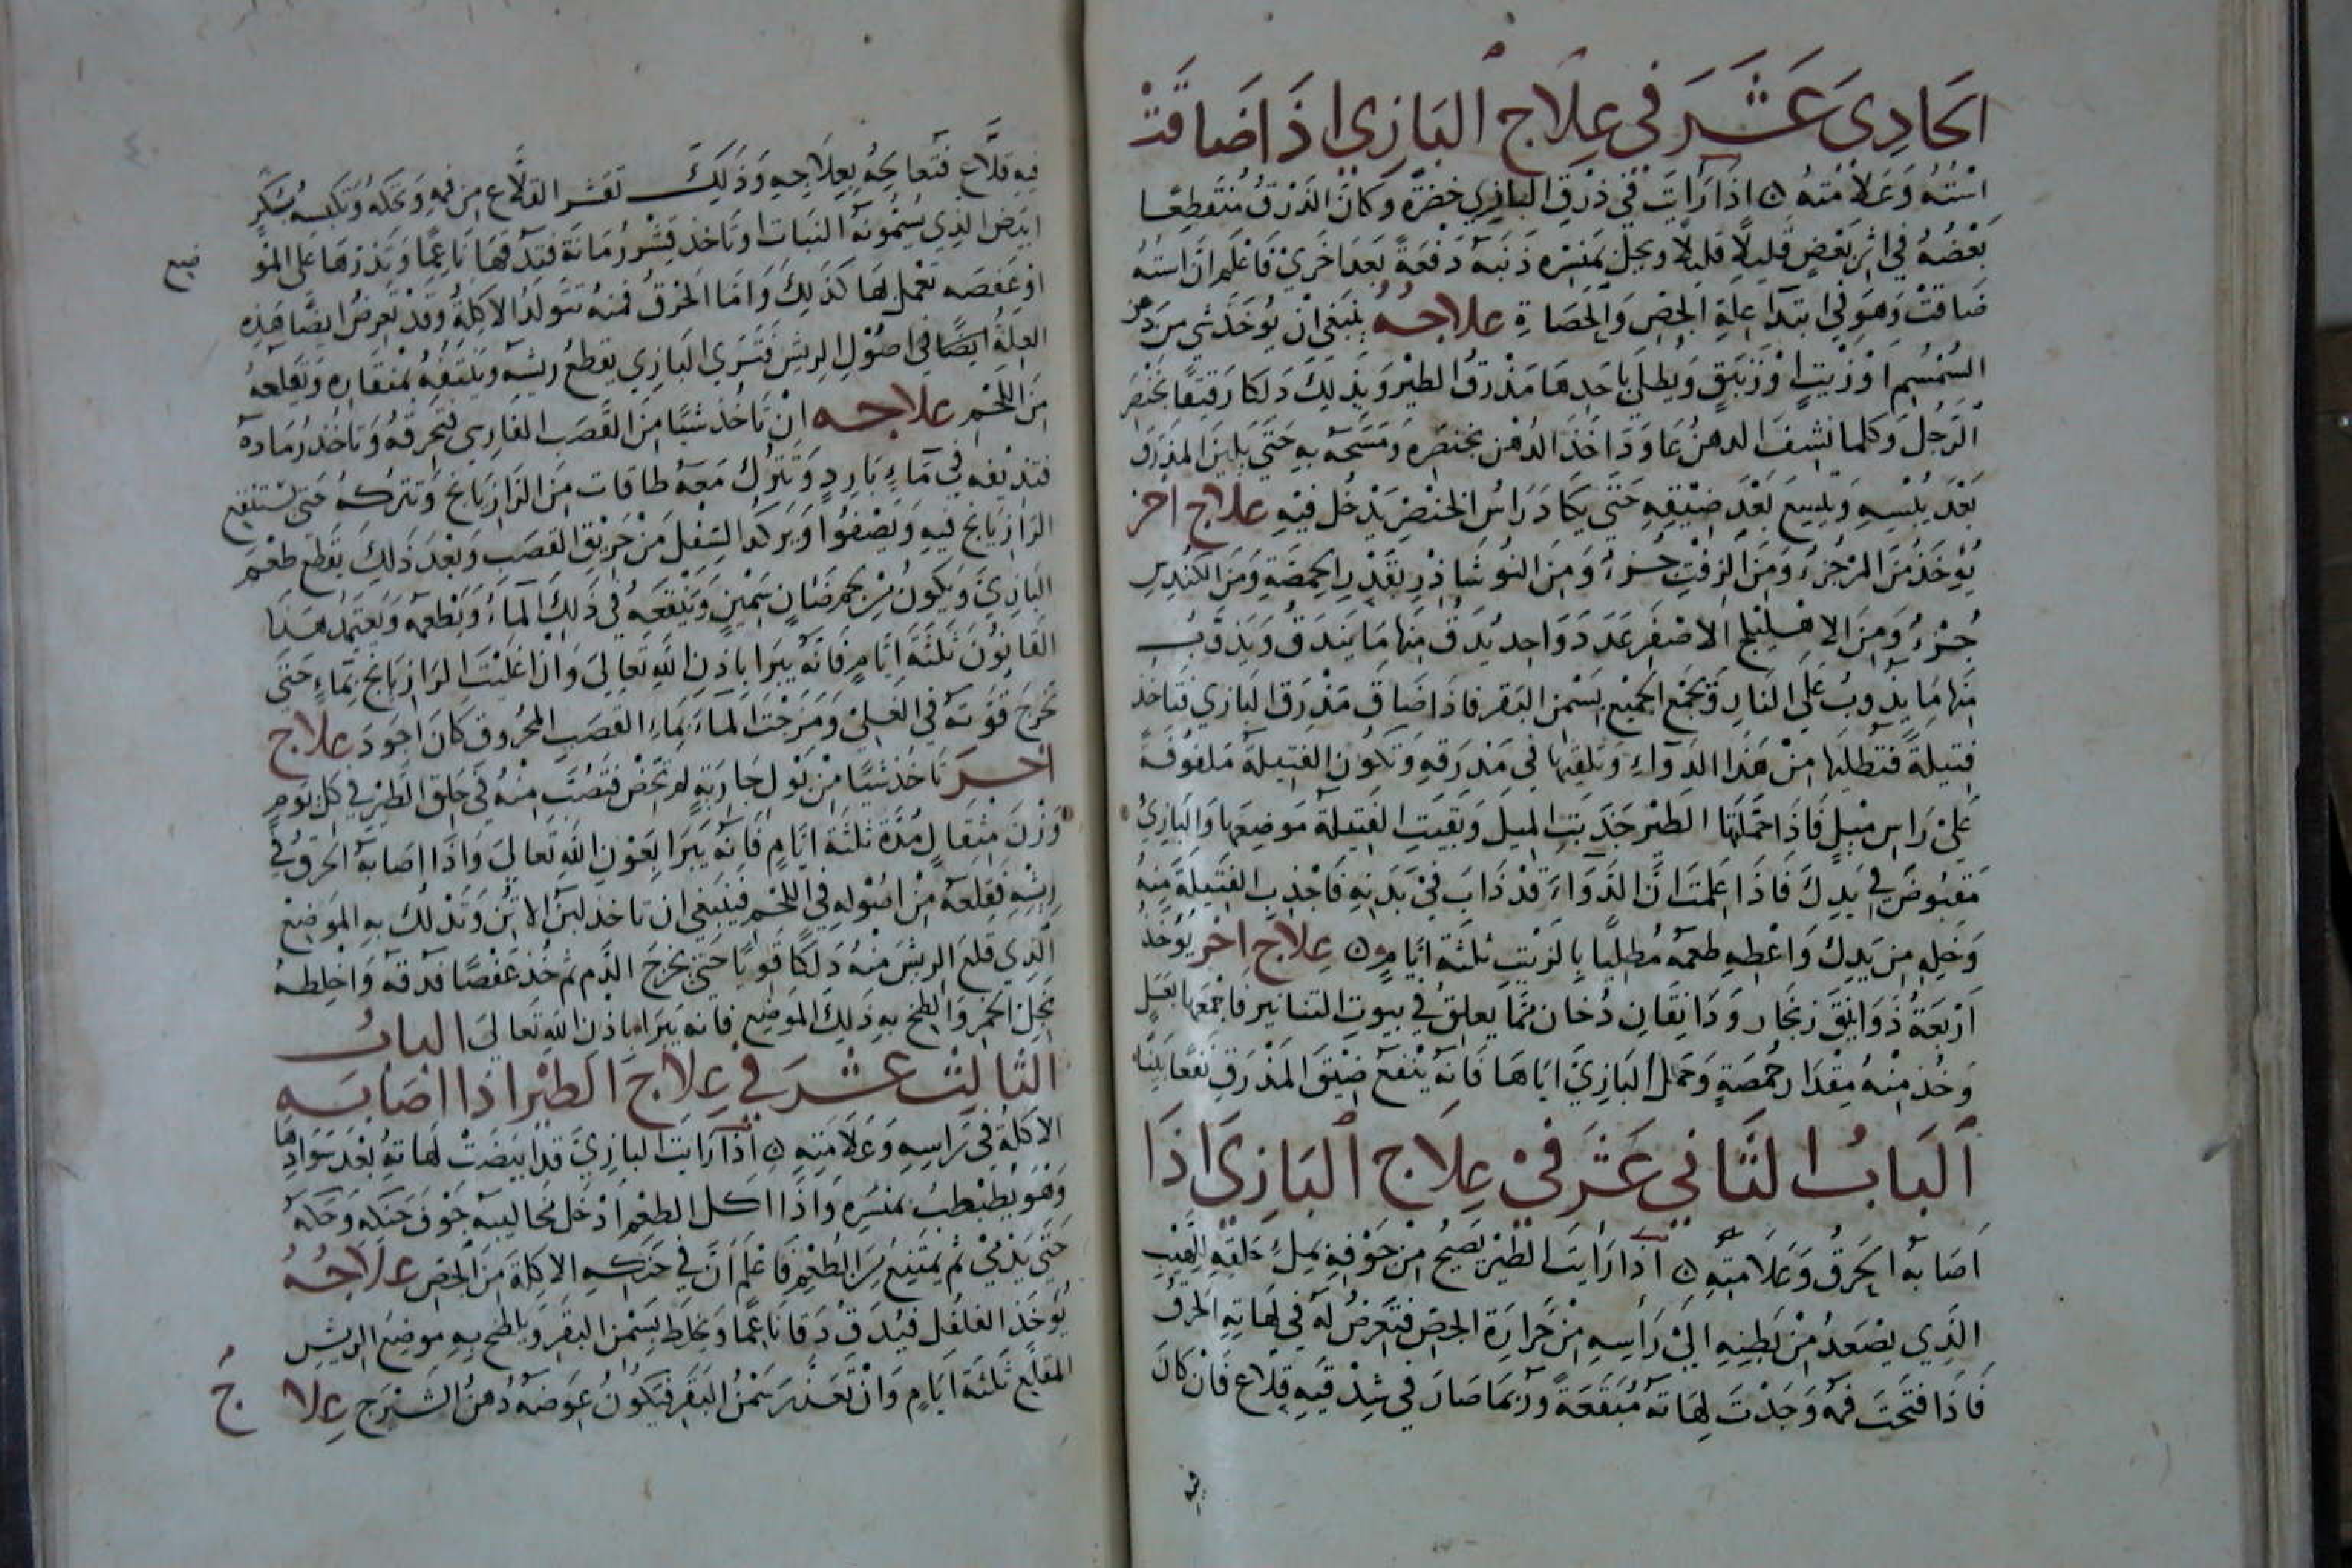 الحَادِى عَشَرَ فى عِلَاج البَازِى اذَا ضَاقَتْ
اسْتُهُ وَعَلَامَتهُ ۞ اذَا رَأيتَ فى ذرْقِ البَازِي خضرَةً وكانَ الذَرْقُ مُنقَطِعًا
بَعْضُهُ فى اثِر بَعْضٍ قَليلًا قَليلًا ويحكّ بمَنْسِرِه ذنَبَه دَفْعَةً بَعدَ اخَرىْ فَاعْلَم انّ استهُ
ضَاقَتْ وَهوَ في ابتدَآ عِلة الجَصّ وَالحصَاةِ علاجُهُ ينبَغى انْ يُوخَذ شي من دهن
السُمْسُمِ اوْ زْيتٍ اوْ زنبَقٍ وَيُطلَى باحَدِهَا مَذْرقُ الطيْر وَيدَلكَ دَلكا رَقيقًا بخنْصَر
الرّجُل وَكلما نشِفَ الدهنُ عَاوَدَ اخَذَ الدُهْن بخنصَره وَمَسَحه بهِ حَتّى يَلينَ المذرَق
بَعْدَ يُبْسِهِ وَيتسِعَ بَعْدَ ضِيْقِهِ حَتَّي يَكادَ رَاسُ الخنْصَر يَدْخُل فيْهِ علاج اخر
يُوْخَذ منَ المرّ جُزءٌ وَمنَ الزفْتِ جُزءٌ وَمنَ النُوشَاذرِ بقَدْرِ الحِمصَةِ وَمنَ الكُندسِ
جُزْءٌ وَمِنَ الاهْليْلج الاصْفَرِ عَدَدَ وَاحِدٍ يُدَقُ مِنهَا مَا يَندَقُ وَيَذوّبُ
مِنهَا مَا يذُوبُ عَلَى النَارِ وَيجمَع الجَميْع بسَمْن البَقر فاذَا ضَاقَ مَذْرَقَ البَازي فتَاخذ
فتيلَةً فتطليهَا مِنْ هَذا الدَوآءِ وَتلقِيهَا في مَذرَقهِ وَتكُونُ الفتيلَةُ مَلفُوفَةً
عَلىْ رَاسِ مِيْلٍ فَاذَا حَمّلتَهَا الطَيْر جَذبتَ الميل وَبقيَتِ الفَتيلَة مَوضِعهَا وَالبَازِيُ
مَقبُوضٌ في يَدِكَ فَاذَا عَلِمتَ انَّ الدَوَآءَ قدْ ذَابَ فيْ بَدَنِهِ فَاجْذبِ الفَتيْلَةَ مِنهُ
وَخلِهِ مِن يَدِكَ وَاعْطهِ طعْمَهُ مُطلِيًا بِالزيْتِ ثلثَةَ ايّامٍ ۞ عِلاج اخَر يُوْخَذ
ارْبَعَةُ ذَوَانِيْقَ زنجَار وَدَانقَانِ دُخان ممَّا يَعلِقُ في بيُوتِ التنانيْر فاجْمَعهَا بعَسَلٍ
وَخُذ مِنْهُ مِقْدَارَ حُمصَةٍ وَحَمّل البَازِيَ ايَاهَا فَانهُ يَنْفَعُ ضِيْقَ المَذْرَقِ نَفعًا بيّنًا
البَابُ الثَاني عَشَرَ فيْ عِلَاج البَازِي اذَا
اصَابهُ الحَرقُ وَعَلَامَتِهِ ۞ اذَا رَايتَ الطَيْرَ يَصيْحُ مِنْ جَوْفهِ بمِلْءِ حَلقِهِ للهيْبِ
الذِي يَصْعَدُ مِنْ بَطنِهِ اليْ رَاسِهِ مِنْ حَرارَة الجصّ فتَعَرّضُ لهُ فى لهَاتِهِ الحَرقُ
فَاذَا فتَحْتَ فمَهُ وَجَدْتَ لهَاتهُ مُبَقّعَةً وَرُبمَا صَارَ في شِدْقيْهِ قِلَاع فَانْ كانَ
فيه
فيهِ قلَّاع فتُعَالجهُ بِعِلَاجِهِ وَذَلِكَ تقشر القلّاع مِن فمِهِ وَتحكهُ وَتكبسهُ بسُكّرٍ
ابيَض الذِي يُسَمُونه النبَات اوتَاخذ قِشْرَ رُمَانَة فتَدقهَا نَاعِمًا وَتذرهَا عَلى المَوْ
ضع
اوْ عَفصَه تعْمل لهَا كذَلِكَ وَامّا الحَرْقُ فمنهُ تتوَلدُ الاكِلةُ وقدْ تعْرضُ ايضًا هَذِهِ
العِلةُ ايضًا في اصُوْل الريش فتَرَى البَازي يقطَعُ ريشَهُ وَينتِفهُ بمنقَارهِ وَيَقلعهُ
مِنَ اللحْمِ علاجه انْ تَاخُذ شيًا منَ القَصَبِ الفارِسى فتحرقهُ وَتاخُذ رُمادَهُ
فتذيفه في مَآءٍ بَارِدٍ وَتترُك مَعهُ طاقات مِنَ الرَازيَانج وَتترُكهُ حَتى يَسْتنقع
الرَازيَانج فيْهِ وَيَصْفوا وَيَركد السُفِل مِنْ حَرِيْق القَصَب وَبعْدَ ذَلِكَ يقَطع طُعْم
البَازيَ وَيكونُ مِنْ لحم ضَانٍ سَمْينٍ وَينْقعهِ في ذَلِكَ المآءُ وَيُطعمهُ وَيَعتمَدُ هَذا
القَانُونَ ثلثَةَ ايّامٍ فَانهُ يَبَرا باذنِ اللهِ تعَالىَ وَانْ اغليْتَ الرَازيَانج بمَاءٍ حَتىَ
تخرجَ قوّتهُ في الغَلىْ وَمَزجْتَ المآءَ بمَاءِ القصَبِ المحْرُوق كانَ اجوَدَ علاج
اخَر تاخذ شيئًا مِنْ بَوْلِ جَاريَةٍ لم تحْض فتَصُبّ مِنهُ في حَلق الطَيْر في كل يَومٍ
وَزْنَ مِثقالٍ مُدّة ثلثَة ايّامٍ فَانهُ يَبَرا بِعَوْنِ اللهِ تعَاليَ وَاذَا اصَابهُ الحَرقُ في
ريْشِهِ فقلعهُ مِنْ اصُوْلهِ في اللحْمِ فينبَغي ان تاخذ لبنَ الاتُن وَتَدْلُك بهِ المَوضِعَ
الذِي قلعَ الريشَ مِنْهُ دَلكًا قويًا حَتى يخرجَ الدّم ثم خُذ عَفْصًا فدقهُ وَاخْلِطهُ
بخَلّ الخَمْرِ وَالطخ بهِ ذَلِكَ المَوضِع فانه يَبَرا باذنِ اللهِ تعَاليَ البابُ
الثَالِثَ عَشَرَ في عِلَاجَ الطَيْر اذَا اصَابَه
الاكِلةُ فى رَاسِهِ وَعَلَامَتِهِ ۞ اذَا رَايتَ البازِيَ قدْ ابيَضّتْ لهَاتهُ بَعْدَ سَوَادِهَا
وَهْوَ يُطَبْطِبُ بمَنْسَرِهِ وَاذَا اكَلَ الطُعْمَ ادْخَلَ مخَاليبَهُ جَوْفَ حَنَكهِ وَحَكّهُ
حَتَّى يَدْمىْ ثم يمْتَنِعَ مِنَ الطُعْمِ فَاعْلَم انَّ فى حَنَكهِ الاكِلةَ مِنَ الجصّ علَاجُهُ
يُوْخَذ الفلفُل فيُدَقُ دَقا نَاعِمًا وَيخلَط بسَمْن البَقر وَيلطخ بهِ مَوضِعَ الريْشِ
المقلع ثلثَةَ ايَامٍ وَانْ تَعَذّرَ سَمْنُ البقرِ فيَكُونُ عِوَضهُ دُهنُ الشَيْرَج عِلَاجُ